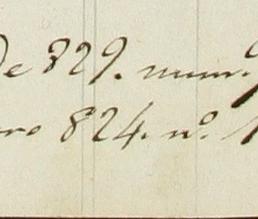 de 829. num.
ro 824. nº. 1